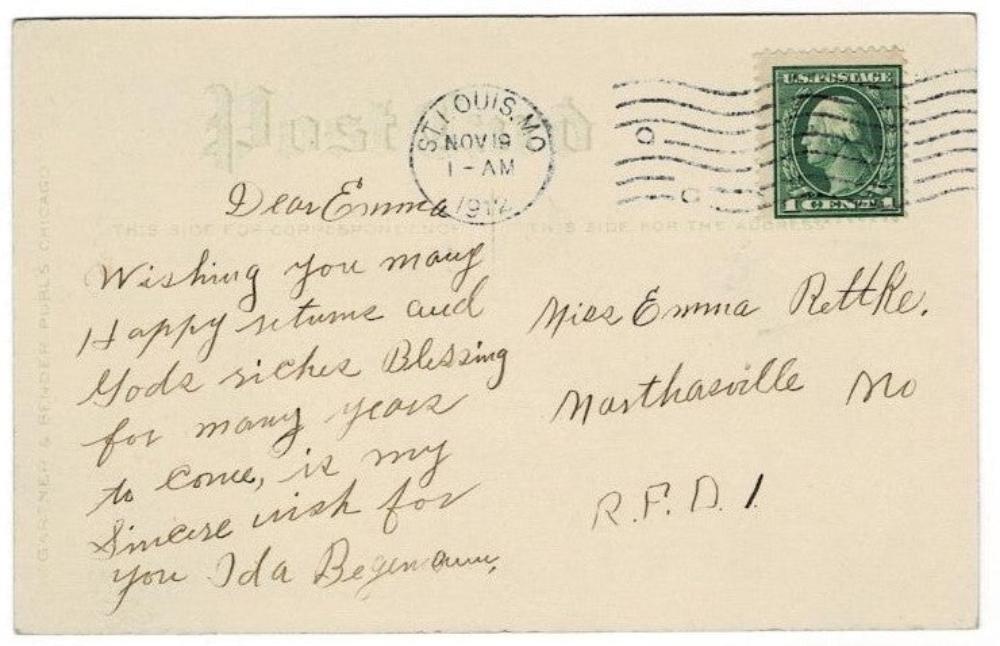 Post Card
ST. LOUIS, MO
NOV 19
1 - AM
1917
U.S. POSTAGE
1 CENT 1
THIS SIDE FOR CORRESPONDENCE
THIS SIDE FOR THE ADDRESS
GARTNER & BENDER PUBLS CHICAGO
Dear Emma
Wishing you many
Happy returns and
Gods riches Blessing
for many years
to come, is my
Sincere wish for
you Ida Begemann,
Miss Emma Rettke.
Marthasville Mo
R.F.D. 1